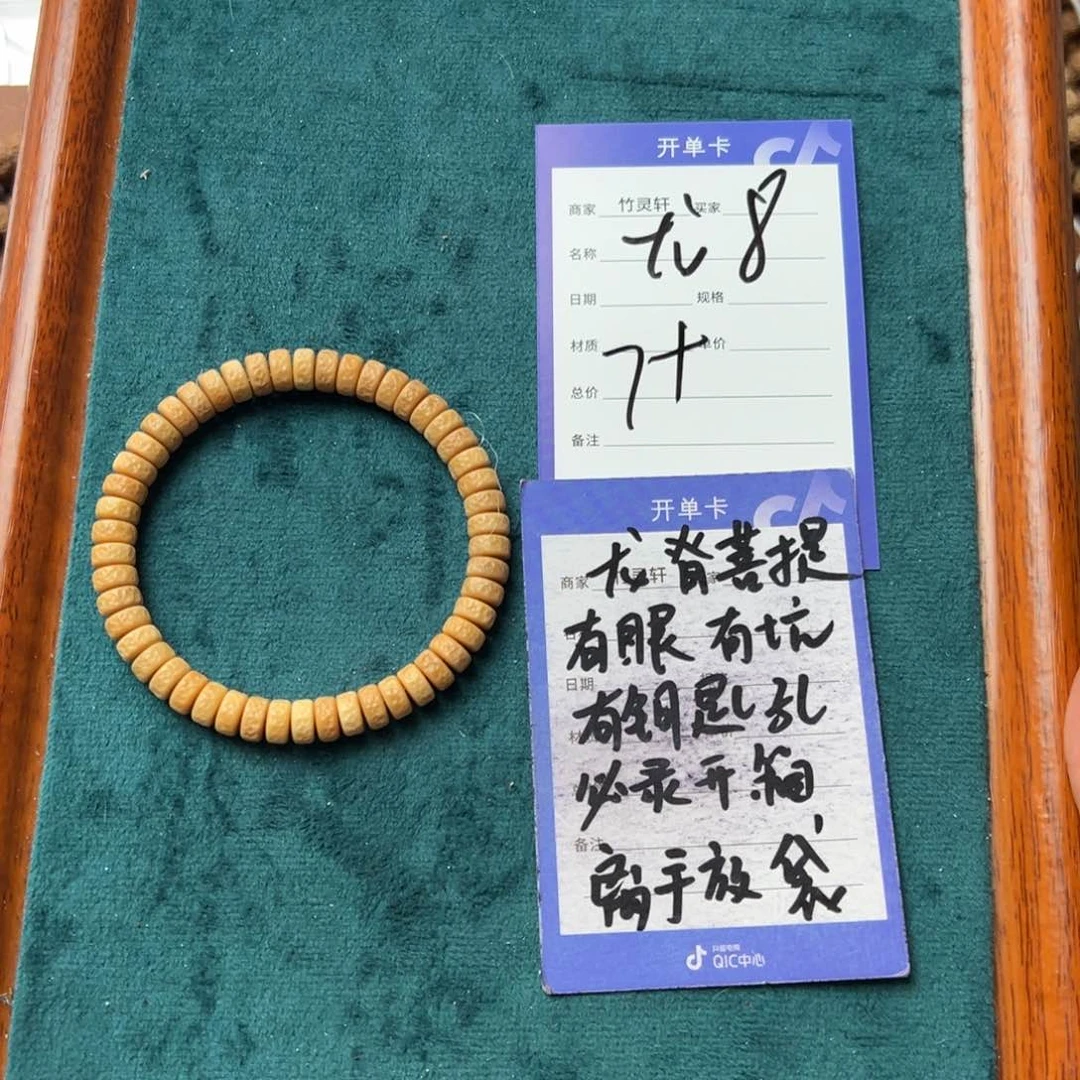 开单卡
商家 竹灵轩 买家
龙 8
名称
日期 规格
材质 单价
总价
备注
开单卡
龙脊菩提
商家 竹灵轩
有眼有坑
日期
有钥匙孔
必录开箱
备注
离手放袋
抖音电商
QIC中心